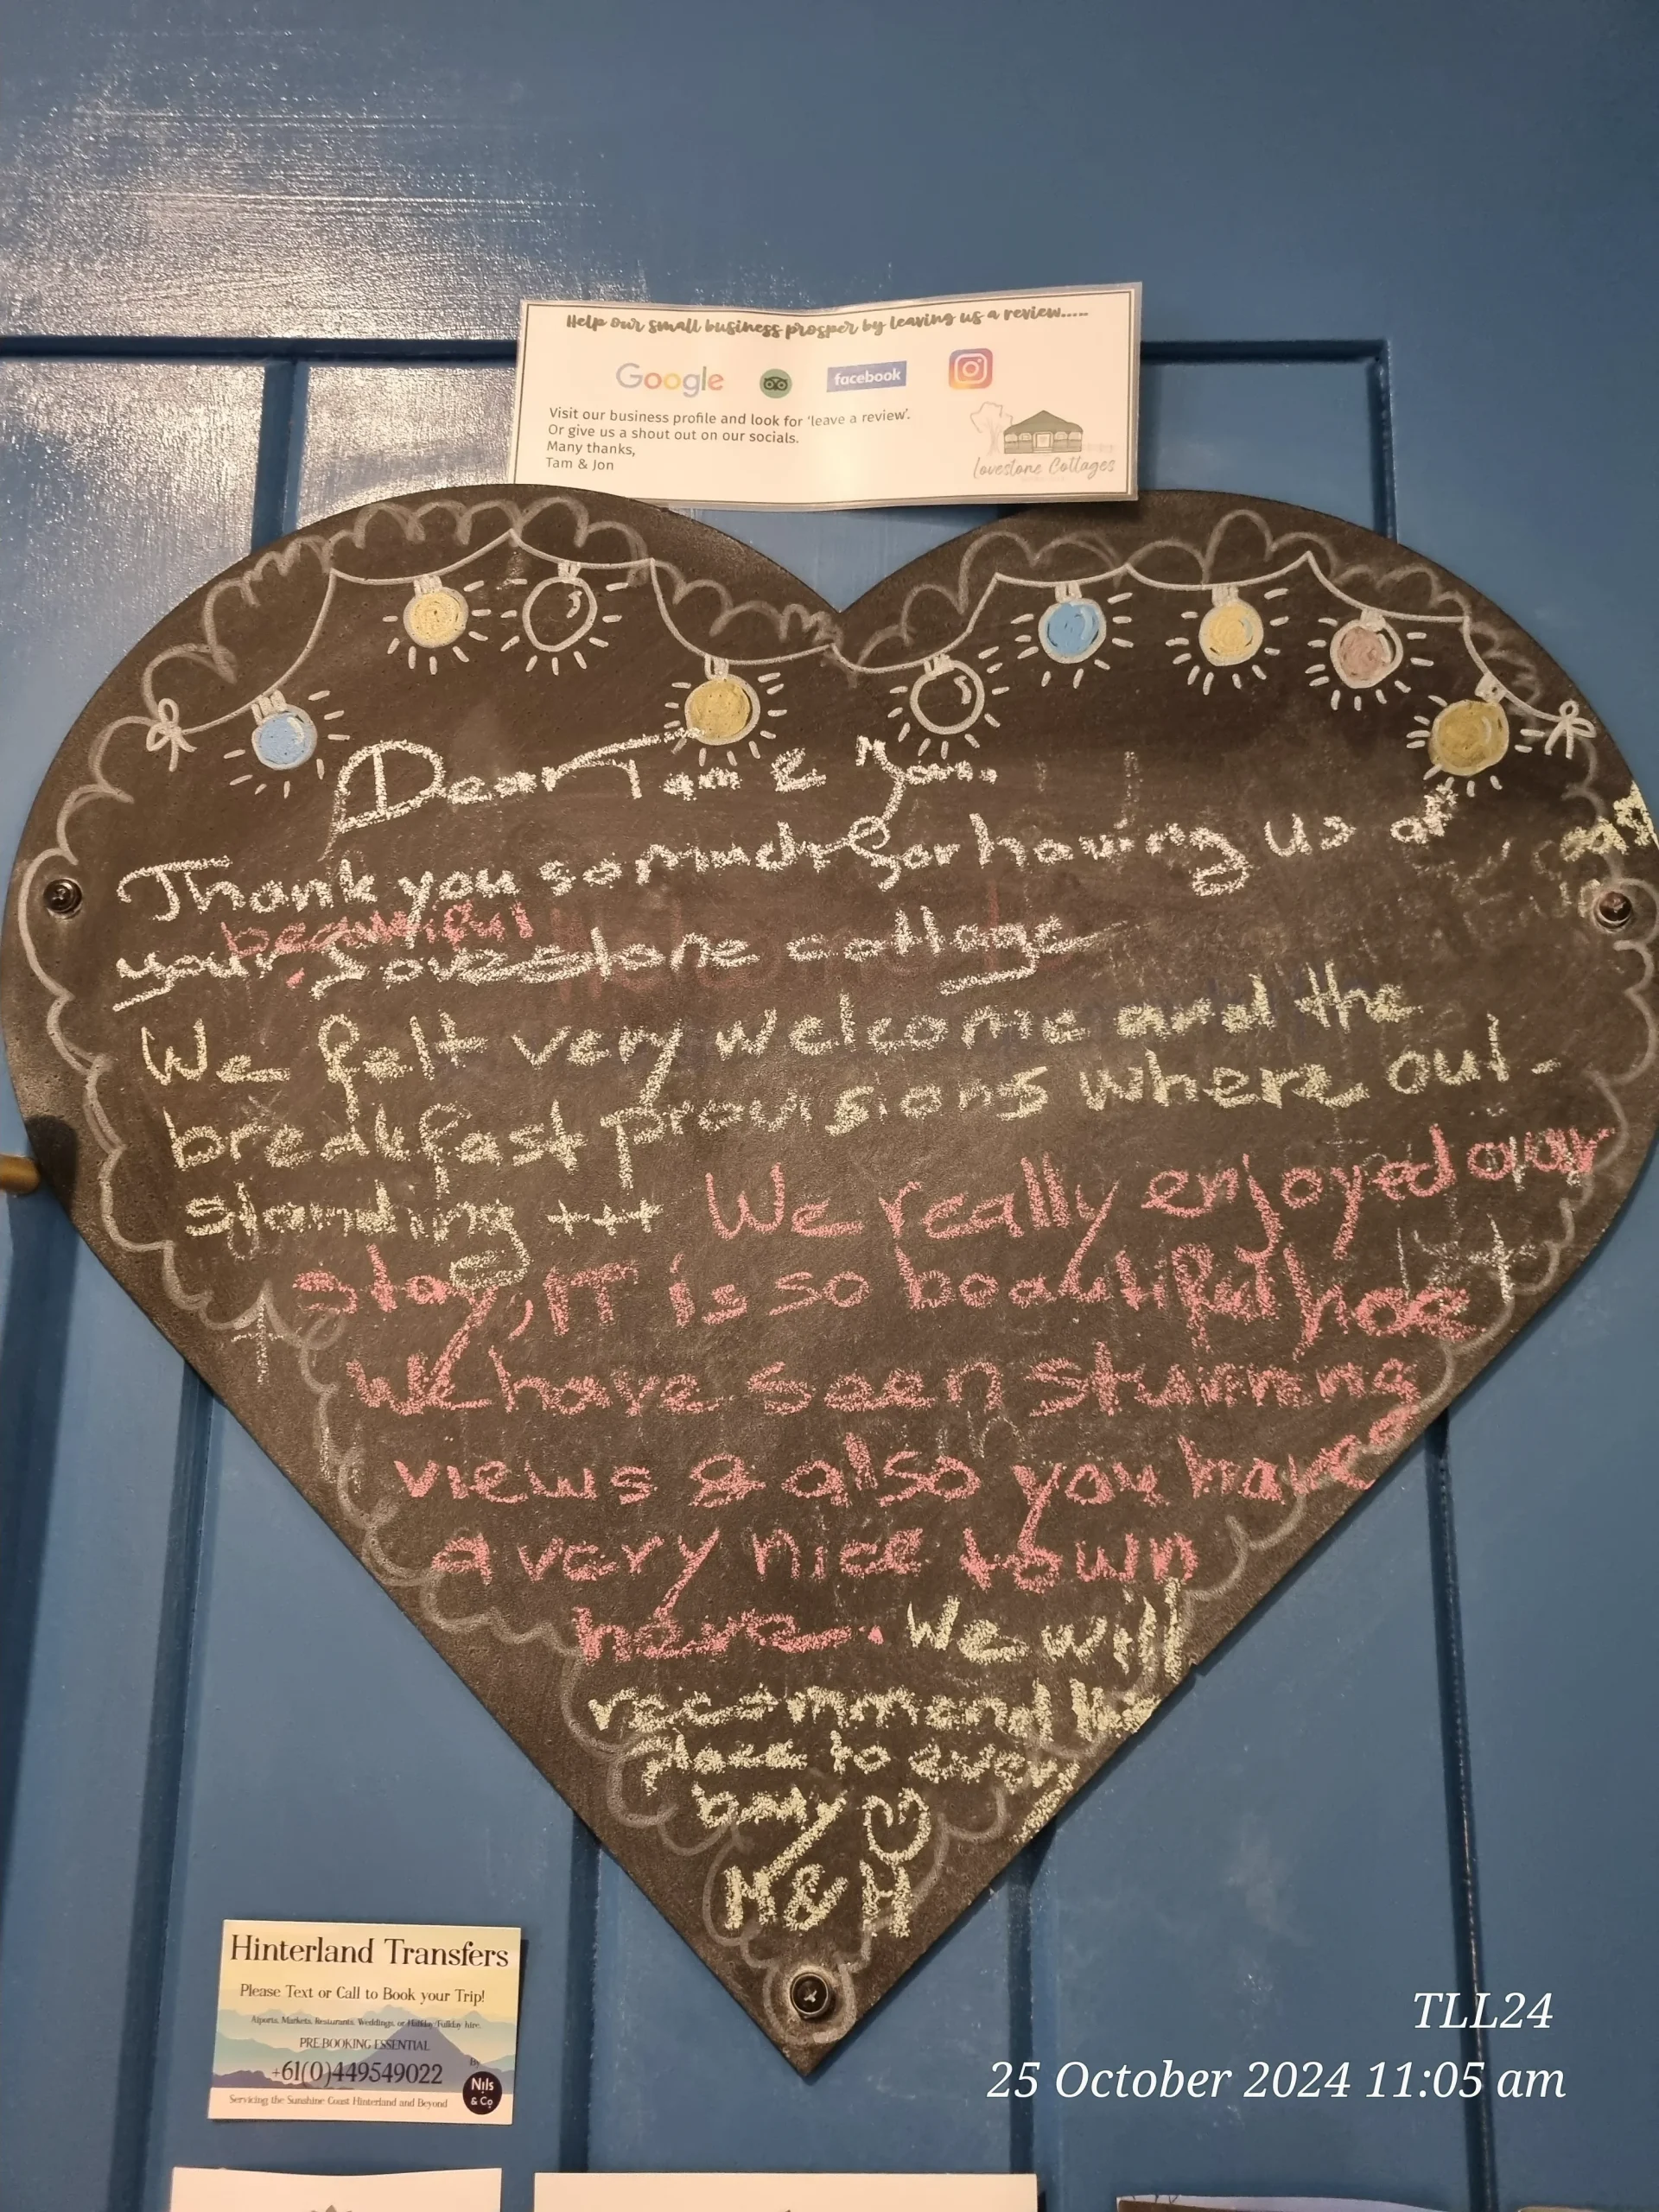 Help our small business prosper by leaving us a review.....
Google facebook
Visit our business profile and look for 'leave a review'.
Or give us a shout out on our socials.
Many thanks,
Tam & Jon
Lovestone Cottages
Dear Tam & Jon.
Thank you so much for having us at
beautiful
your Lovestone cottage
We felt very welcome and the
breakfast provisions where out-
standing +++ We really enjoyed our
stay, IT is so beautiful here
We have seen stunning
views & also you have
a very nice town
here. We will
recommend this
place to every
body
M & H
Hinterland Transfers
Please Text or Call to Book your Trip!
Aiports, Markets, Resturants, Weddings, or Halfday/Fullday hire.
PRE BOOKING ESSENTIAL
+61(0)449549022
By
Nils
& Co
Servicing the Sunshine Coast Hinterland and Beyond
TLL24
25 October 2024 11:05 am